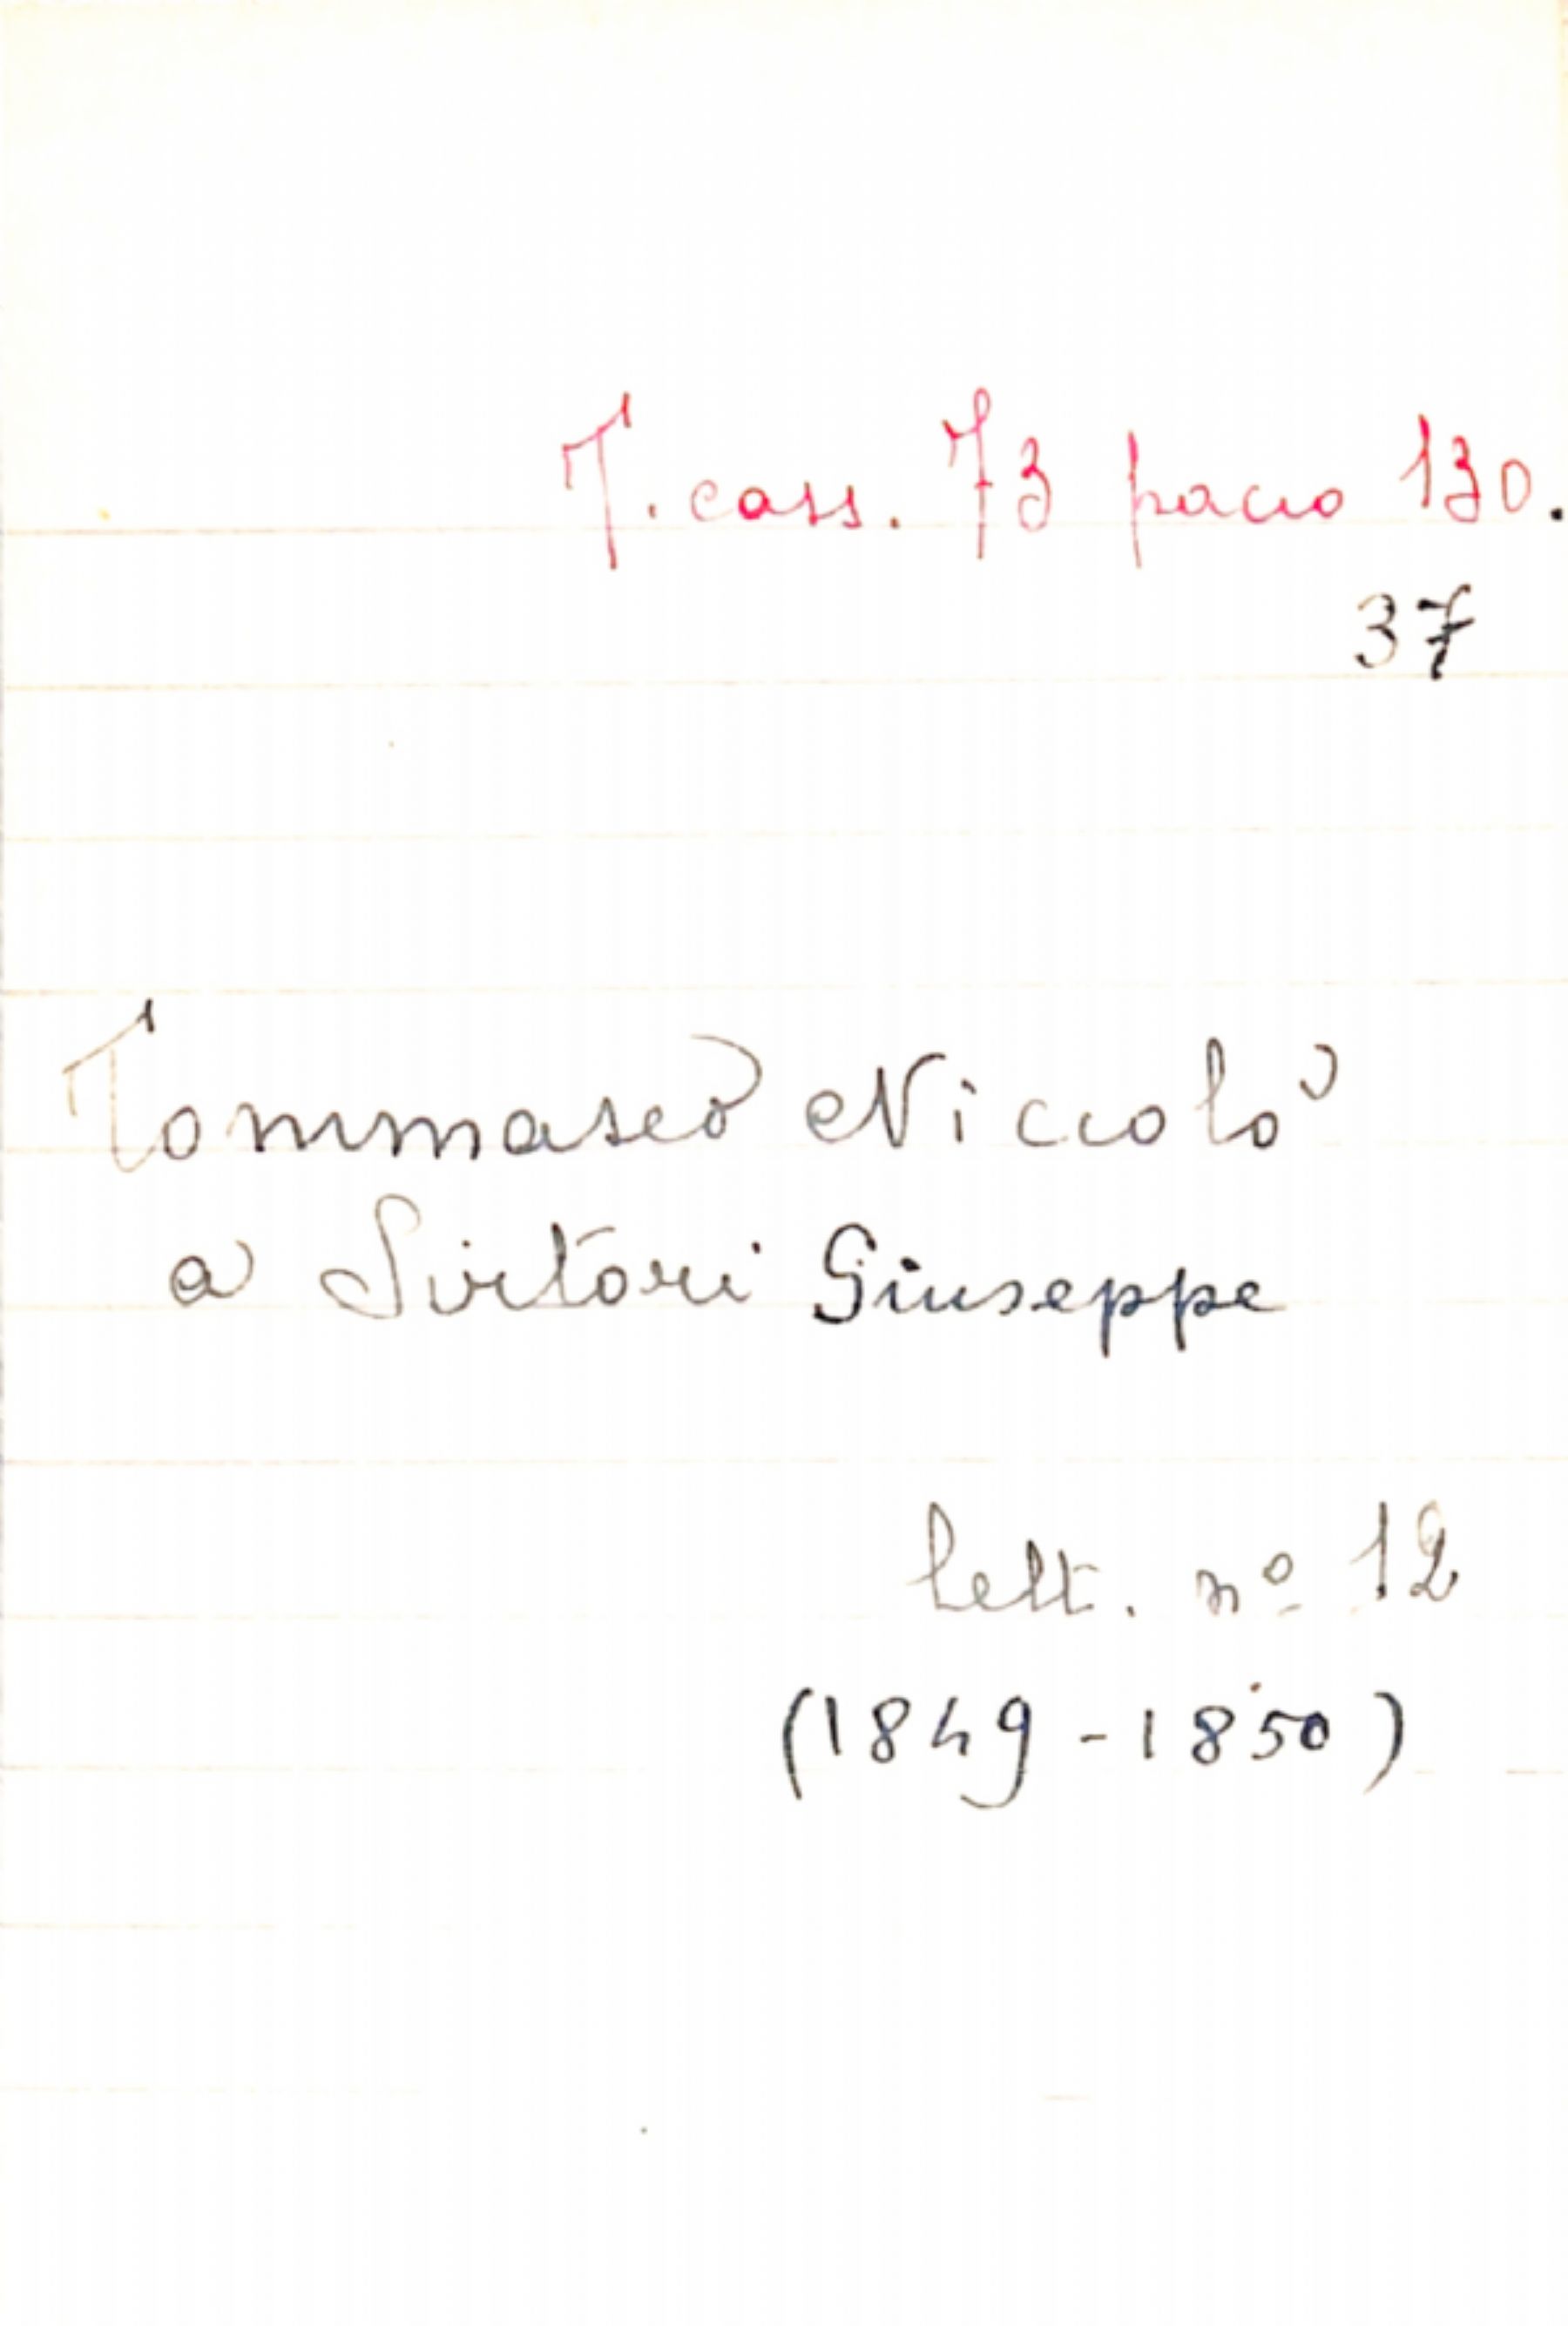 T. cass. 73 pacco 130.
37
Tommaseo Niccolò
a Sirtori Giuseppe
lett. nº 12
(1849-1850)